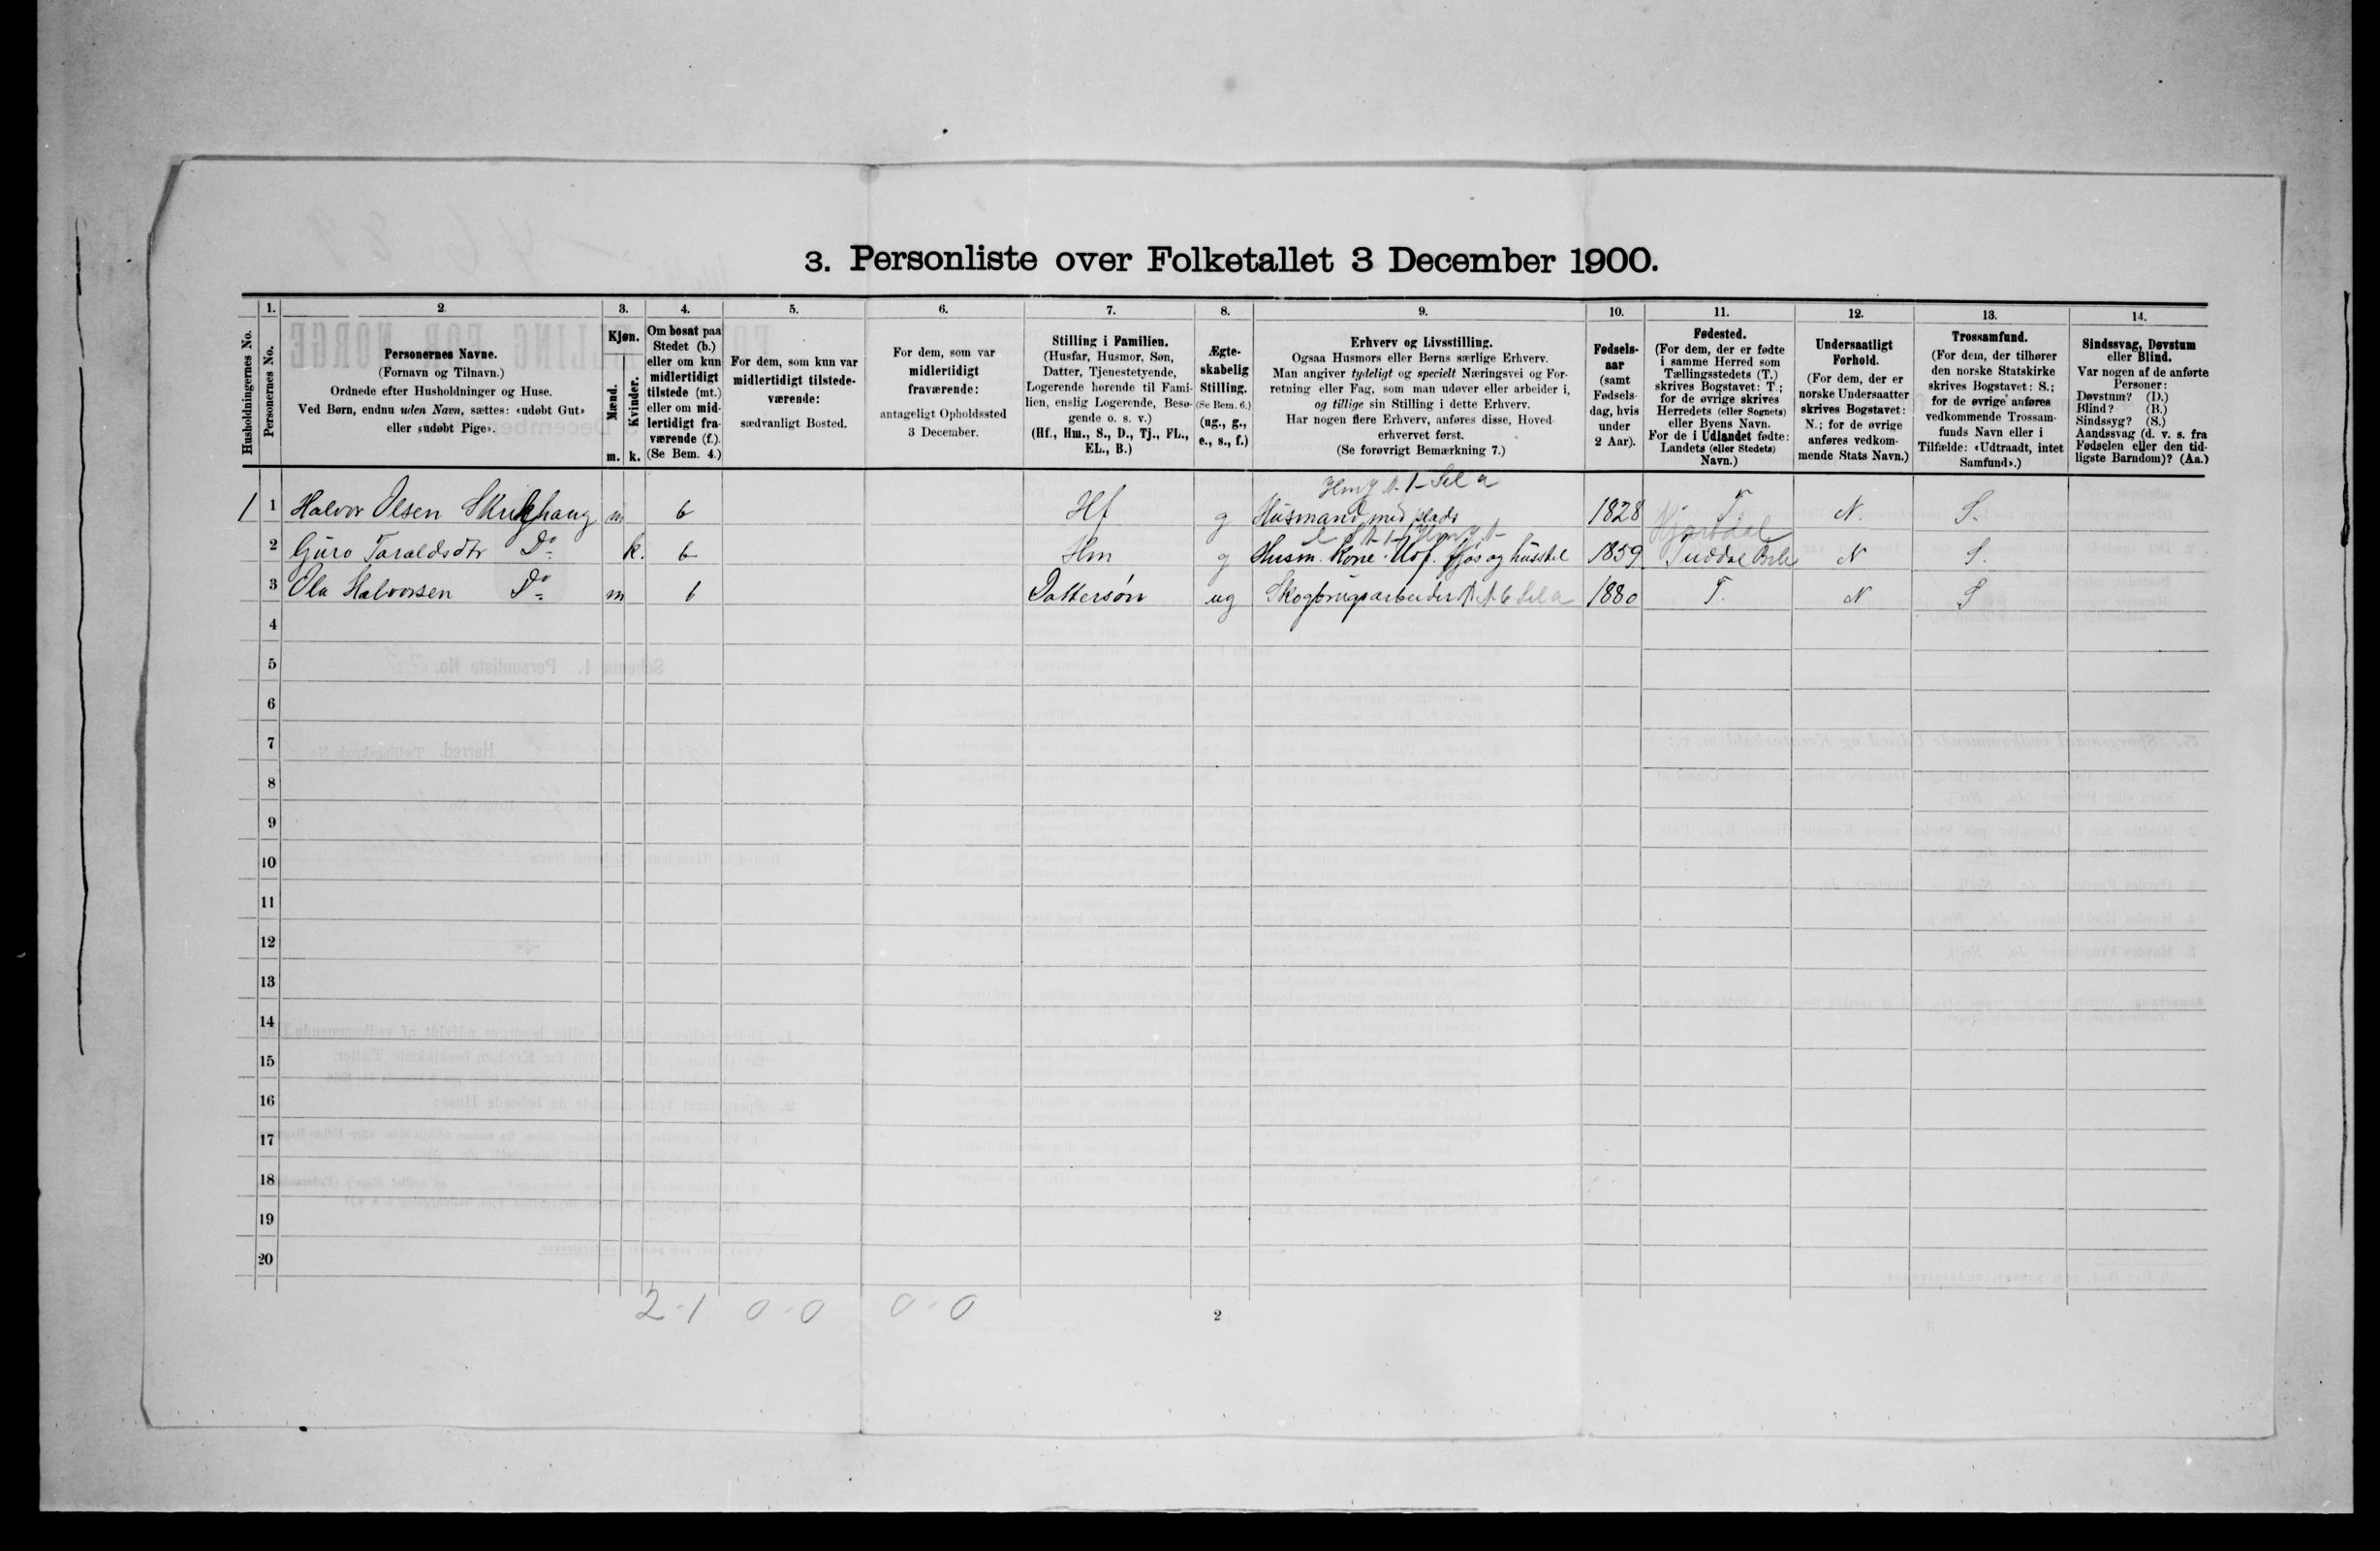 3. Personliste over Folketallet 3 December 1900.
1. 2. 3. 4. 5. 6. 7. 8. 9. 10. 11. 12. 13. 14.
Husholdningernes No.
Personernes No.
Personernes Navne.
(Fornavn og Tilnavn.)
Ordnede efter Husholdninger og Huse.
Ved Børn, endnu uden Navn, sættes: «udøbt Gut»
eller «udøbt Pige».
Kjøn.
Mænd. Kvinder.
m. k.
Om bosat paa
Stedet (b.)
eller om kun
midlertidigt
tilstede (mt.)
eller om mid-
lertidigt fra-
værende (f.).
(Se Bem. 4.)
For dem, som kun var
midlertidigt tilstede-
værende:
sædvanligt Bosted.
For dem, som var
midlertidigt
fraværende:
antageligt Opholdssted
3 December.
Stilling i Familien.
(Husfar, Husmor, Søn,
Datter, Tjenestetyende,
Logerende hørende til Fami-
lien, enslig Logerende, Besø-
gende o. s. v.)
(Hf., Hm., S., D., Tj., FL.,
EL., B.)
Ægte-
skabelig
Stilling.
(Se Bem. 6.)
(ug., g.,
e., s., f.)
Erhverv og Livsstilling.
Ogsaa Husmors eller Børns særlige Erhverv.
Man angiver tydeligt og specielt Næringsvei og For-
retning eller Fag, som man udøver eller arbeider i,
og tillige sin Stilling i dette Erhverv.
Har nogen flere Erhverv, anføres disse, Hoved-
erhvervet først.
(Se forøvrigt Bemærkning 7.)
Fødsels-
aar
(samt
Fødsels-
dag, hvis
under
2 Aar).
Fødested.
(For dem, der er fødte
i samme Herred som
Tællingsstedets (T.)
skrives Bogstavet: T.;
for de øvrige skrives
Herredets (eller Sognets)
eller Byens Navn.
For de i Udlandet fødte:
Landets (eller Stedets)
Navn.)
Undersaatligt
Forhold.
(For dem, der er
norske Undersaatter
skrives Bogstavet:
N.; for de øvrige
anføres vedkom-
mende Stats Navn.)
Trossamfund.
(For dem, der tilhører
den norske Statskirke
skrives Bogstavet: S.;
for de øvrige anføres
vedkommende Trossam-
funds Navn eller i
Tilfælde: «Udtraadt, intet
Samfund».)
Sindssvag, Døvstum
eller Blind.
Var nogen af de anførte
Personer:
Døvstum? (D.)
Blind? (B.)
Sindssyg? (S.)
Aandssvag (d. v. s. fra
Fødselen eller den tid-
ligste Barndom)? (Aa.)
1 1 Halvor Olsen m b Hf g Husmand med plads 1828 T N. S.
Hjartdal
2 Guro Taraldsdtr Do k. b Hm g Husm. Kone. fjøs og husstel 1859 Tuddal N S.
3 Ola Halvorsen Do m b Dattersøn ug Skogbrugsarbeider 1880 T. N S
4
5
6
7
8
9
10
11
12
13
14
15
16
17
18
19
20
2-1 0-0 0-0
2